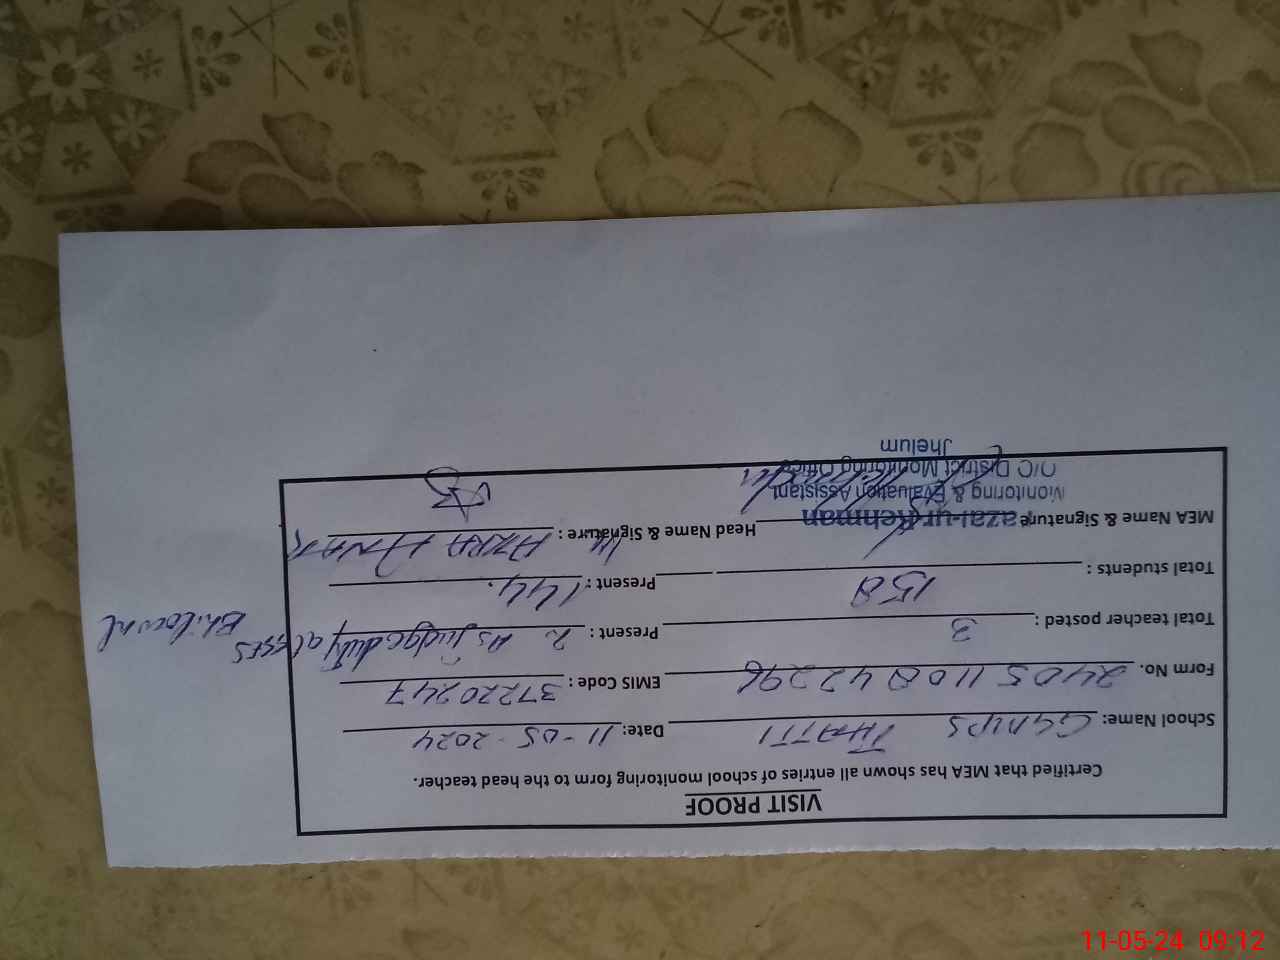 VISIT PROOF
Certified that MEA has shown all entries of school monitoring form to the head teacher.
School Name: GGMPS THATTI Date: 11-05-2024
Form No. 2405110842296 EMIS Code: 37220247
Total teacher posted: 3 Present: 2 As judge duty at GSES
Total students: 158 Present: 144.
MEA Name & Signature azal-ur-Rehman Head Name & Signature: AZRA
Monitoring & Evaluation Assistant
O/O District Monitoring Officer
Jhelum
11-05-24 09:12